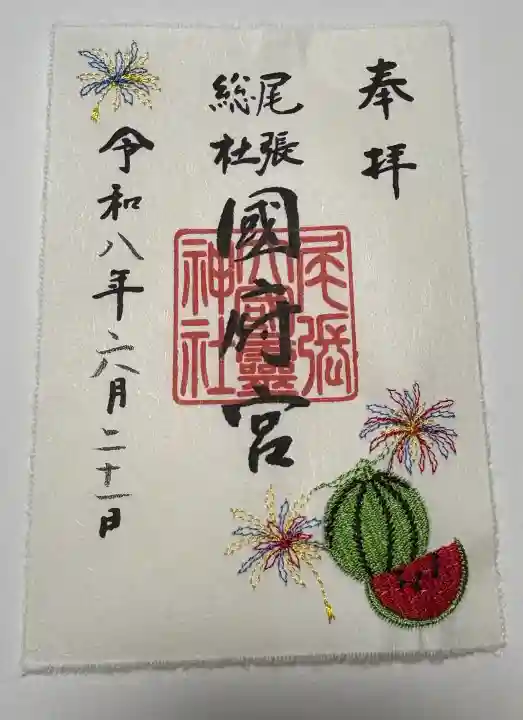 奉拝
尾張
総社
國府宮
尾張
大國靈
神社
令和八年六月二十一日